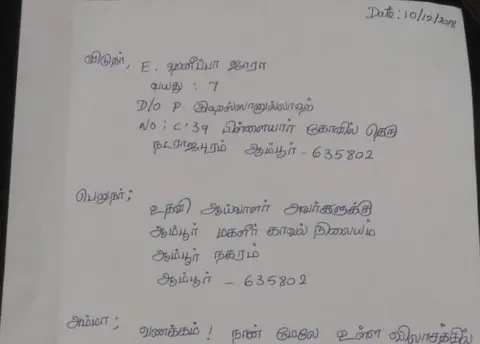 Date: 10/12/2018
விடுநர், E. ஹனீப்பா ஜாரா
வயது : 7
D/o P. இஹ்ஸானுல்லாஹ்
No: C'39 பிள்ளையார் கோவில் தெரு
நடராஜபுரம் ஆம்பூர் - 635802
பெறுநர்;
உதவி ஆய்வாளர் அவர்களுக்கு
ஆம்பூர் மகளிர் காவல் நிலையம்
ஆம்பூர் நகரம்
ஆம்பூர் - 635802
அம்மா;
வணக்கம்! நான் மேலே உள்ள விலாசத்தில்